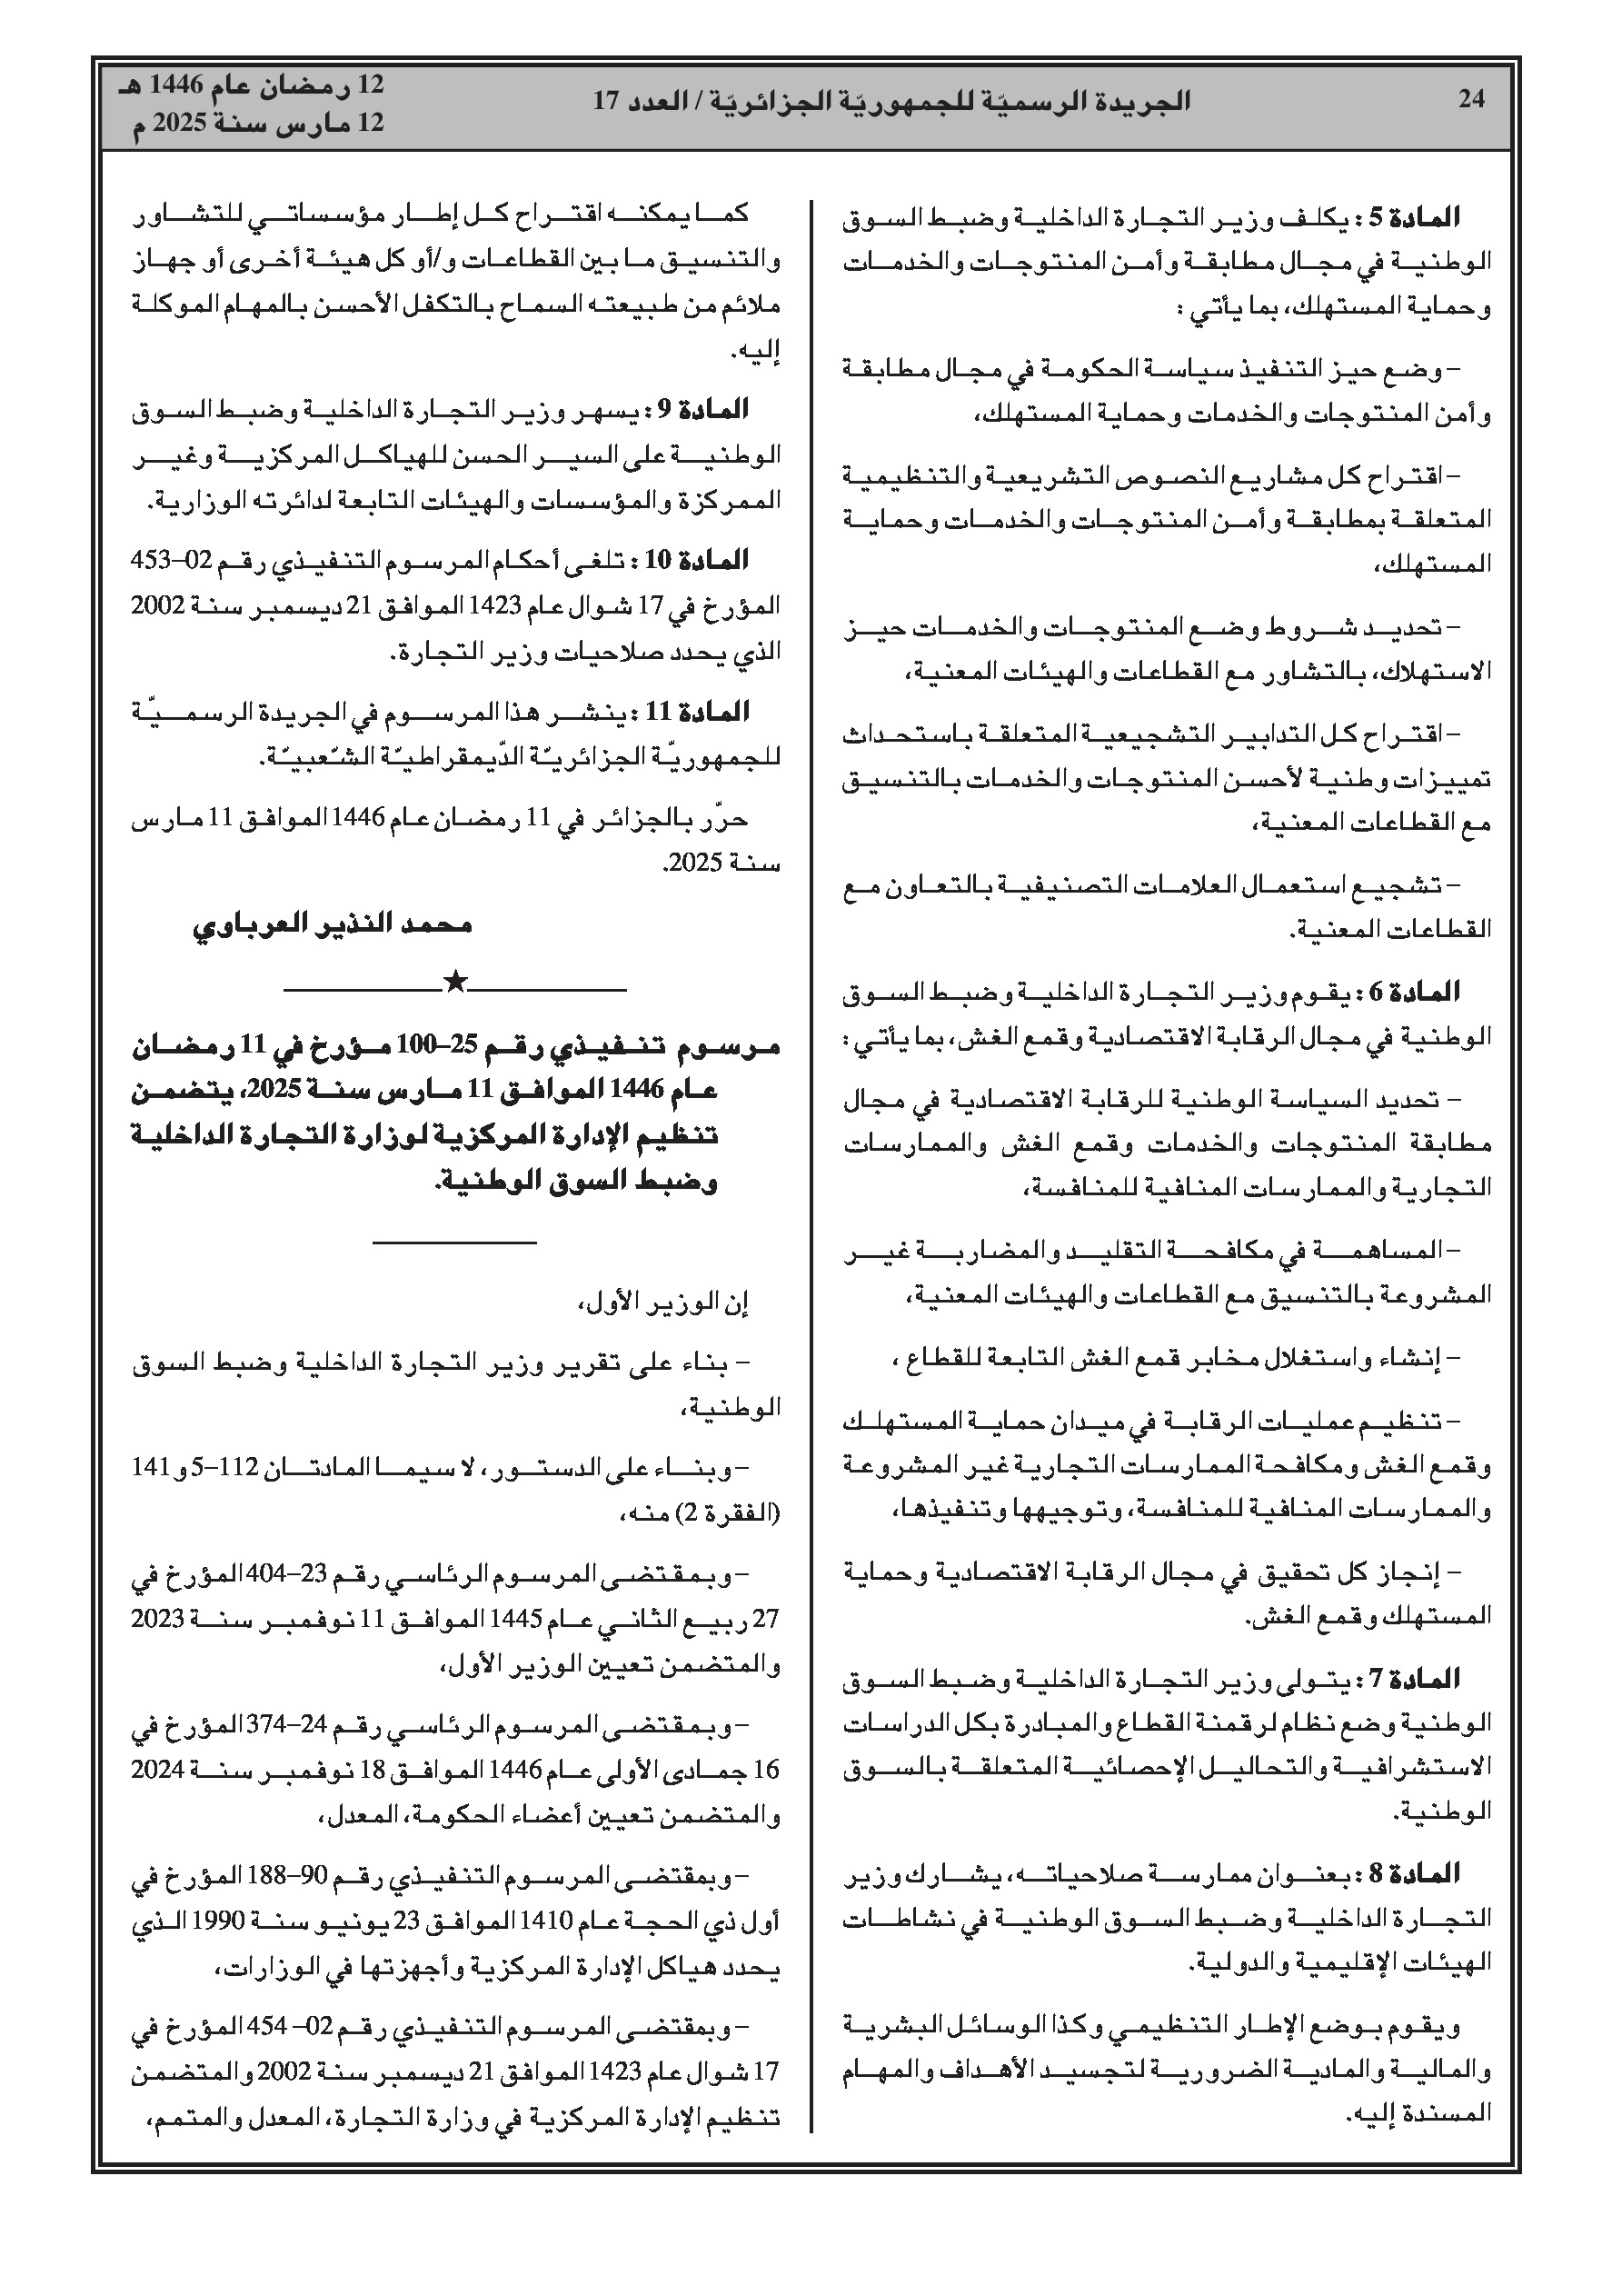 24
الجريدة الرسميّة للجمهوريّة الجزائريّة / العدد 17
12 رمضان عام 1446 هـ
12 مارس سنة 2025 م
المادة 5 : يكلف وزير التجارة الداخلية وضبط السوق
الوطنية في مجال مطابقة وأمن المنتوجات والخدمات
وحماية المستهلك، بما يأتي :
– وضع حيز التنفيذ سياسة الحكومة في مجال مطابقة
وأمن المنتوجات والخدمات وحماية المستهلك،
– اقتراح كل مشاريع النصوص التشريعية والتنظيمية
المتعلقة بمطابقة وأمن المنتوجات والخدمات وحماية
المستهلك،
– تحديد شروط وضع المنتوجات والخدمات حيز
الاستهلاك، بالتشاور مع القطاعات والهيئات المعنية،
– اقتراح كل التدابير التشجيعية المتعلقة باستحداث
تمييزات وطنية لأحسن المنتوجات والخدمات بالتنسيق
مع القطاعات المعنية،
– تشجيع استعمال العلامات التصنيفية بالتعاون مع
القطاعات المعنية.
المادة 6 : يقوم وزير التجارة الداخلية وضبط السوق
الوطنية في مجال الرقابة الاقتصادية وقمع الغش، بما يأتي :
– تحديد السياسة الوطنية للرقابة الاقتصادية في مجال
مطابقة المنتوجات والخدمات وقمع الغش والممارسات
التجارية والممارسات المنافية للمنافسة،
– المساهمة في مكافحة التقليد والمضاربة غير
المشروعة بالتنسيق مع القطاعات والهيئات المعنية،
– إنشاء واستغلال مخابر قمع الغش التابعة للقطاع ،
– تنظيم عمليات الرقابة في ميدان حماية المستهلك
وقمع الغش ومكافحة الممارسات التجارية غير المشروعة
والممارسات المنافية للمنافسة، وتوجيهها وتنفيذها،
– إنجاز كل تحقيق في مجال الرقابة الاقتصادية وحماية
المستهلك وقمع الغش.
المادة 7 : يتولى وزير التجارة الداخلية وضبط السوق
الوطنية وضع نظام لرقمنة القطاع والمبادرة بكل الدراسات
الاستشرافية والتحاليل الإحصائية المتعلقة بالسوق
الوطنية.
المادة 8 : بعنوان ممارسة صلاحياته، يشارك وزير
التجارة الداخلية وضبط السوق الوطنية في نشاطات
الهيئات الإقليمية والدولية.
ويقوم بوضع الإطار التنظيمي وكذا الوسائل البشرية
والمالية والمادية الضرورية لتجسيد الأهداف والمهام
المسندة إليه.
كما يمكنه اقتراح كل إطار مؤسساتي للتشاور
والتنسيق ما بين القطاعات و/أو كل هيئة أخرى أو جهاز
ملائم من طبيعته السماح بالتكفل الأحسن بالمهام الموكلة
إليه.
المادة 9 : يسهر وزير التجارة الداخلية وضبط السوق
الوطنية على السير الحسن للهياكل المركزية وغير
الممركزة والمؤسسات والهيئات التابعة لدائرته الوزارية.
المادة 10 : تلغى أحكام المرسوم التنفيذي رقم 02–453
المؤرخ في 17 شوال عام 1423 الموافق 21 ديسمبر سنة 2002
الذي يحدد صلاحيات وزير التجارة.
المادة 11 : ينشر هذا المرسوم في الجريدة الرسميّة
للجمهوريّة الجزائريّة الدّيمقراطيّة الشّعبيّة.
حرّر بالجزائر في 11 رمضان عام 1446 الموافق 11 مارس
سنة 2025.
محمد النذير العرباوي
مرسوم تنفيذي رقم 25–100 مؤرخ في 11 رمضان
عام 1446 الموافق 11 مارس سنة 2025، يتضمن
تنظيم الإدارة المركزية لوزارة التجارة الداخلية
وضبط السوق الوطنية.
إن الوزير الأول،
– بناء على تقرير وزير التجارة الداخلية وضبط السوق
الوطنية،
– وبناء على الدستور، لا سيما المادتان 112–5 و 141
(الفقرة 2) منه،
– وبمقتضى المرسوم الرئاسي رقم 23–404 المؤرخ في
27 ربيع الثاني عام 1445 الموافق 11 نوفمبر سنة 2023
والمتضمن تعيين الوزير الأول،
– وبمقتضى المرسوم الرئاسي رقم 24–374 المؤرخ في
16 جمادى الأولى عام 1446 الموافق 18 نوفمبر سنة 2024
والمتضمن تعيين أعضاء الحكومة، المعدل،
– وبمقتضى المرسوم التنفيذي رقم 90–188 المؤرخ في
أول ذي الحجة عام 1410 الموافق 23 يونيو سنة 1990 الذي
يحدد هياكل الإدارة المركزية وأجهزتها في الوزارات،
– وبمقتضى المرسوم التنفيذي رقم 02– 454 المؤرخ في
17 شوال عام 1423 الموافق 21 ديسمبر سنة 2002 والمتضمن
تنظيم الإدارة المركزية في وزارة التجارة، المعدل والمتمم،